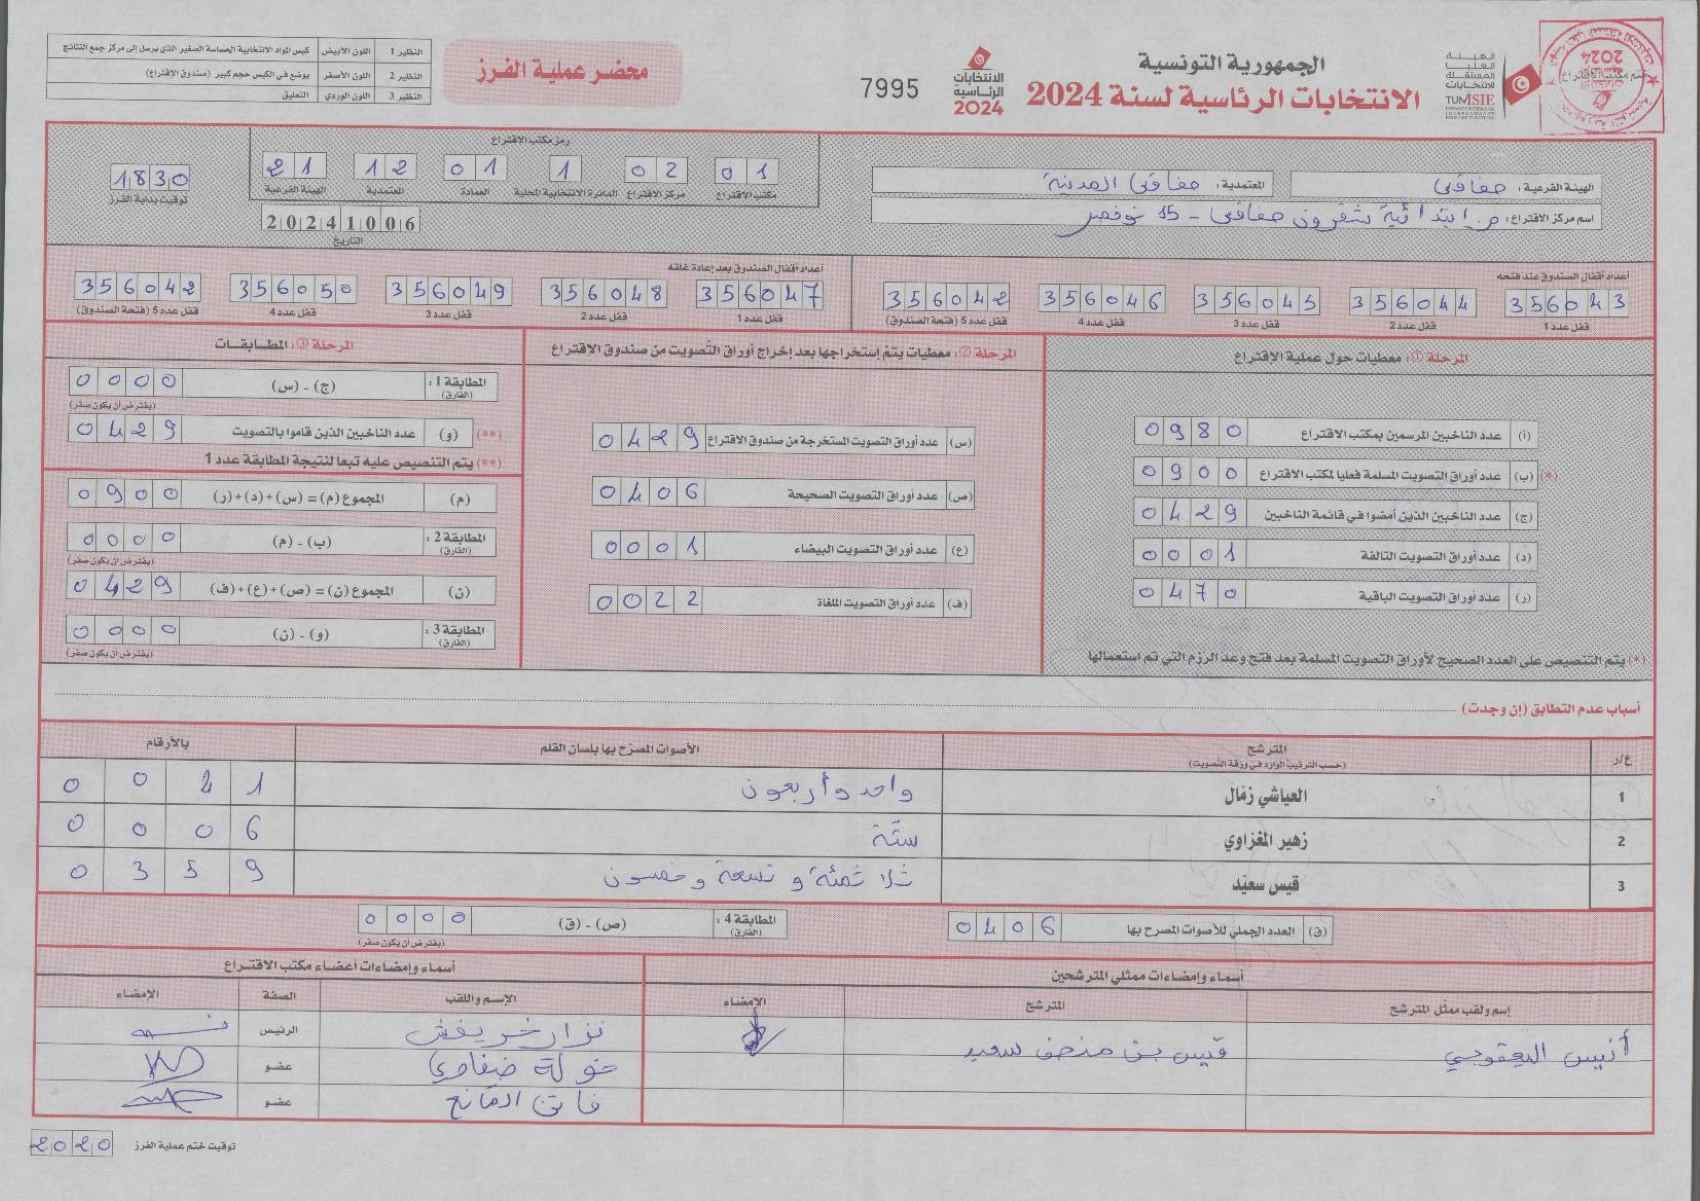 الجمهورية التونسية
الانتخابات الرئاسية لسنة 2024
الهيئة العليا المستقلة للانتخابات
TUNISIE
ختم مكتب الاقتراع
2024
الانتخابات الرئاسية 2024
7995
محضر عملية الفرز
النظير 1 اللون الأبيض كيس المواد الانتخابية الحساسة الصغير الذي يرسل إلى مركز جمع النتائج
النظير 2 اللون الأصفر يوضع في الكيس حجم كبير (صندوق الاقتراع)
النظير 3 اللون الوردي التعليق
الهيئة الفرعية: صفاقس
المعتمدية: صفاقس المدينة
اسم مركز الاقتراع: م. ابتدائية بشفرون صفاقس - 15 نوفمبر
رمز مكتب الاقتراع
01 02 1 01 12 21
مكتب الاقتراع مركز الاقتراع الدائرة الانتخابية المحلية العمادة المعتمدية الهيئة الفرعية
20241006
التاريخ
1830
توقيت بداية الفرز
أعداد أقفال الصندوق عند فتحه
356043 356044 356045 356046 356042
قفل عدد 1 قفل عدد 2 قفل عدد 3 قفل عدد 4 قفل عدد 5 (فتحة الصندوق)
أعداد أقفال الصندوق بعد إعادة غلقه
356047 356048 356049 356050 356042
قفل عدد 1 قفل عدد 2 قفل عدد 3 قفل عدد 4 قفل عدد 5 (فتحة الصندوق)
المرحلة ①: معطيات حول عملية الاقتراع
(أ) عدد الناخبين المرسمين بمكتب الاقتراع 0980
(*) (ب) عدد أوراق التصويت المسلمة فعليا لمكتب الاقتراع 0900
(ج) عدد الناخبين الذين أمضوا في قائمة الناخبين 0429
(د) عدد أوراق التصويت التالفة 0001
(ر) عدد أوراق التصويت الباقية 0470
(*) يتم التنصيص على العدد الصحيح لأوراق التصويت المسلمة بعد فتح وعد الرزم التي تم استعمالها
المرحلة ②: معطيات يتم إستخراجها بعد إخراج أوراق التصويت من صندوق الاقتراع
(س) عدد أوراق التصويت المستخرجة من صندوق الاقتراع 0429
(ص) عدد أوراق التصويت الصحيحة 0406
(ع) عدد أوراق التصويت البيضاء 0001
(ف) عدد أوراق التصويت الملغاة 0022
المرحلة ③: المطابقات
المطابقة 1: (الفارق) (ج) - (س) 0000
(يفترض أن يكون صفر)
(**) (و) عدد الناخبين الذين قاموا بالتصويت 0429
(**) يتم التنصيص عليه تبعا لنتيجة المطابقة عدد 1
(م) المجموع (م) = (س)+(د)+(ر) 0900
المطابقة 2: (الفارق) (ب) - (م) 0000
(يفترض أن يكون صفر)
(ن) المجموع (ن) = (ص)+(ع)+(ف) 0429
المطابقة 3: (الفارق) (و) - (ن) 0000
(يفترض أن يكون صفر)
أسباب عدم التطابق (إن وجدت)
ع/ر المترشح الأصوات المصرّح بها بلسان القلم بالأرقام
(حسب الترتيب الوارد في ورقة التصويت)
1 العياشي زمّال واحد وأربعون 0 0 4 1
2 زهير المغزاوي ستّة 0 0 0 6
3 قيس سعيّد ثلاثمئة و تسعة وخمسون 0 3 5 9
(ق) العدد الجملي للأصوات المصرح بها 0406
المطابقة 4: (الفارق) (ص) - (ق) 0000
(يفترض أن يكون صفر)
أسماء وإمضاءات ممثلي المترشحين
إسم ولقب ممثّل المترشح المترشح الإمضاء
أنيس اليعقوبي قيس بن منصف سعيد
أسماء وإمضاءات أعضاء مكتب الاقتراع
الإسم واللقب الصفة الإمضاء
نزار خريفش الرئيس
خولة ضفاوي عضو
فاتن المانع عضو
توقيت ختم عملية الفرز 2020